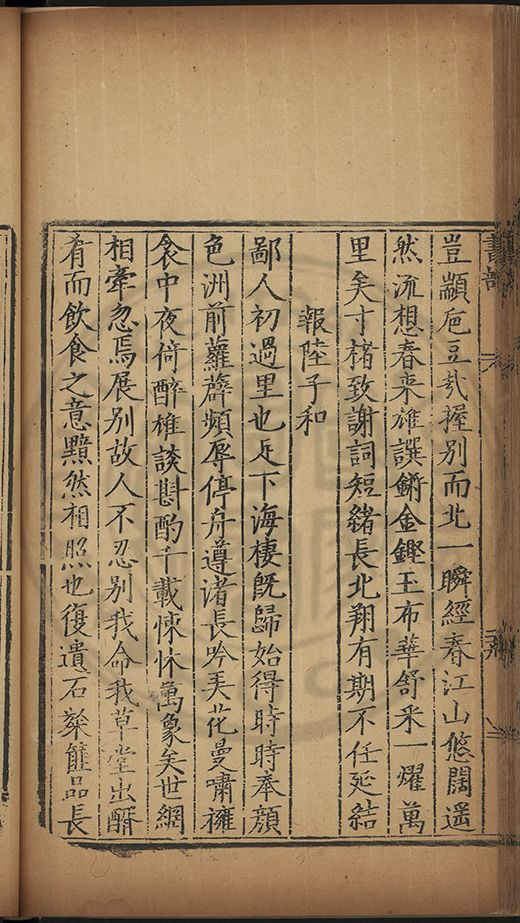 豈顓巵豆㢤握別而北一瞬經春江山悠闊遥
然流想春来雄譔鏘金鏗玉布華舒采一燿萬
里矣寸楮致謝詞短緒長北翔有期不任延結
報陸子和
鄙人初過里也足下海棲旣歸始得時時奉顔
色洲前蘿薜頻辱停舟遵渚長吟美花曼嘯擁
衾中夜倚醉雄談斟酌千載悚怵萬象矣世網
相牽忽焉展別故人不忍別我命我草堂出醑
肴而飲食之意黯然相照也復遺石粲篚品長